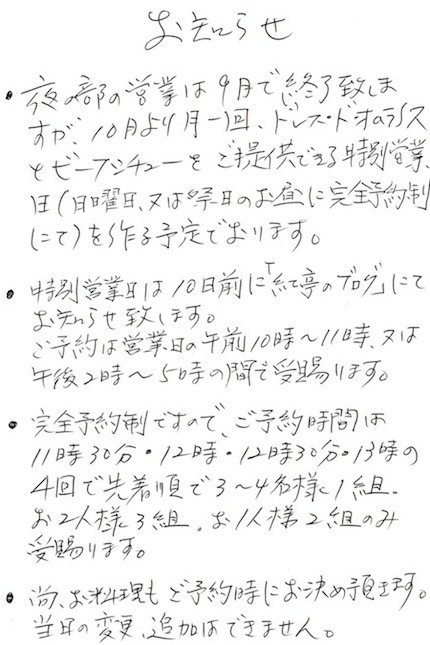 お知らせ
・夜の部の営業は9月で終了致しま
すが、10月より月一回、ドレス・ド・オムライス
とビーフシチューをご提供できる特別営業
日(日曜日、又は祭日のお昼に完全予約制
にて)を作る予定でおります。
・特別営業日は10日前に「紅亭のブログ」にて
お知らせ致します。
ご予約は営業日の午前10時〜11時、又は
午後2時〜5時の間で受賜ります。
・完全予約制ですので、ご予約時間は
11時30分・12時・12時30分・13時の
4回で先着順で3〜4名様1組.
お2人様3組.お1人様2組のみ
受賜ります。
・尚、お料理もご予約時にお決め頂きます。
当日の変更、追加はできません。